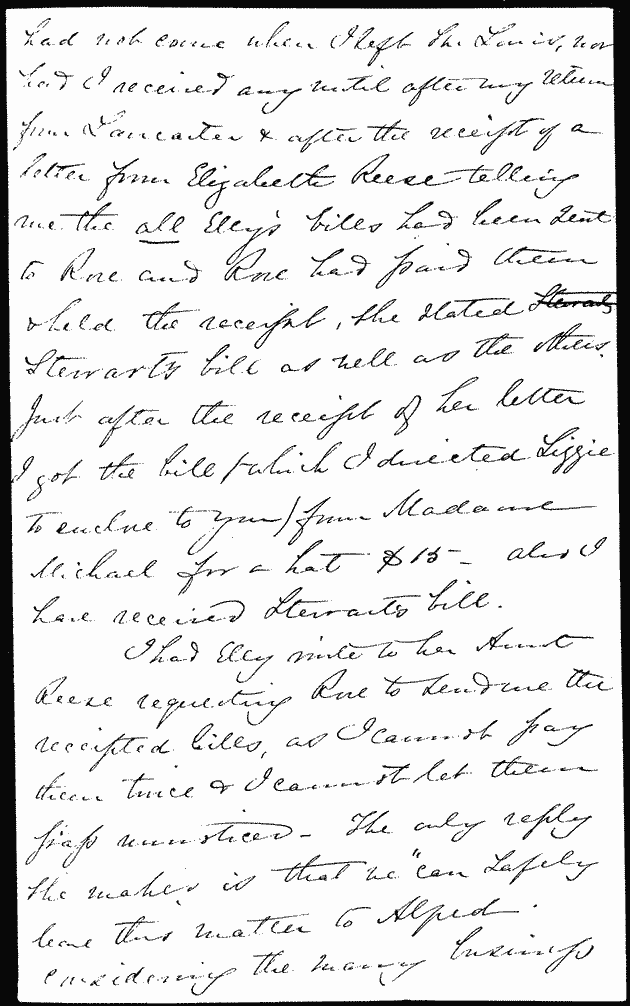 had not come when I left St. Louis, nor
had I received any until after my return
from Lancaster & after the receipt of a
letter from Elizabeth Reese telling
me the all Elly's bills had been sent
to Rose and Rose had paid them
& held the receipt, she stated Stewarts
Stewarts bill as well as the others.
Just after the receipt of her letter
I got the bill (which I directed Lizzie
to enclose to you) from Madame
Michael for a hat $15 - also I
have received Stewarts bill.
I had Elly write to her Aunt
Reese requesting Rose to send me the
receipted bills, as I cannot pay
them twice & I cannot let them
pass unnoticed - The only reply
she makes is that we "can safely
leave this matter to Alfred.
considering the many business